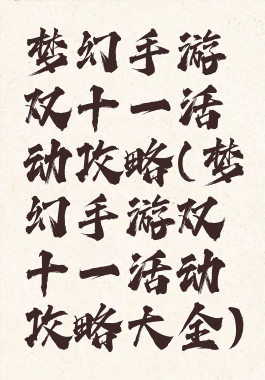 梦幻手游
双十一活
动攻略(梦
幻手游双
十一活动
攻略大全)